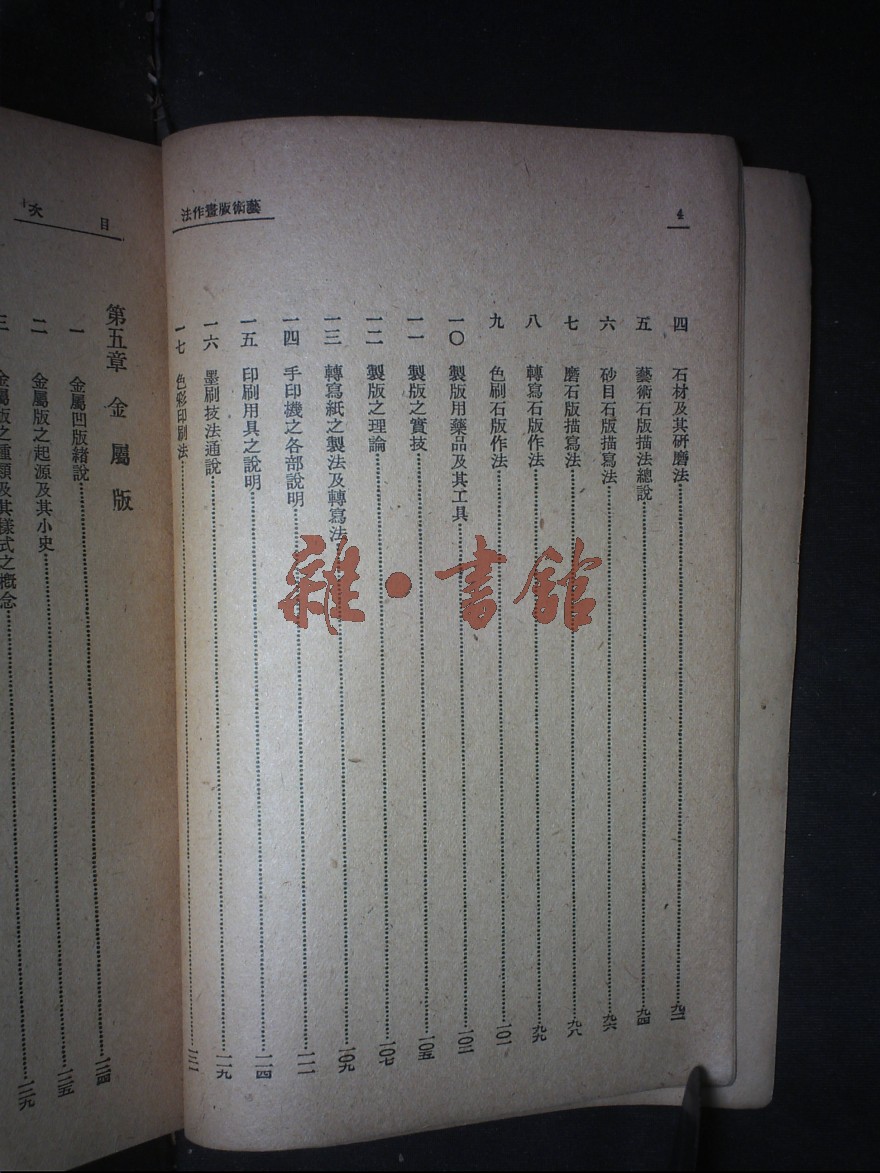 4
藝術版畫作法
四　石材及其研磨法
五　藝術石版描法總說……九四
六　砂目石版描寫法……九六
七　磨石版描寫法……九八
八　轉寫石版作法……九九
九　色刷石版作法……一〇一
一〇　製版用藥品及其工具
一一　製版之實技……一〇五
一二　製版之理論……一〇七
一三　轉寫紙之製法及轉寫法……一〇九
一四　手印機之各部說明
一五　印刷用具之說明……一一四
一六　墨刷技法通說……一一九
一七　色彩印刷法
目次
第五章　金屬版
一　金屬凹版緒說
二　金屬版之起源及其小史
三　金屬版之種類及其樣式之概念
雜·書館